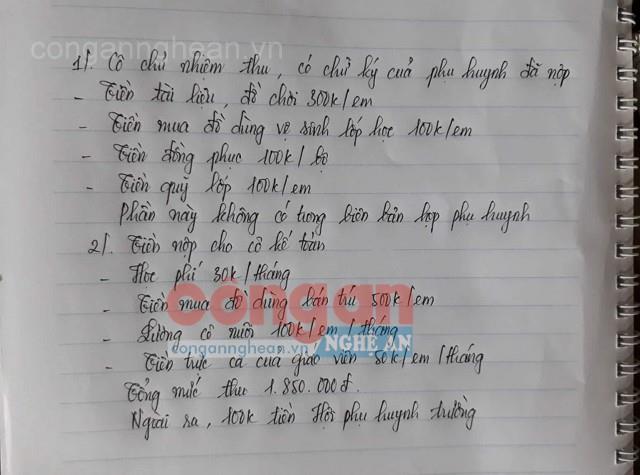 congannghean.vn
1/. Cô chủ nhiệm thu, có chữ ký của phụ huynh đã nộp
- Tiền tài liệu, đồ chơi 300k/em
- Tiền mua đồ dùng vệ sinh lớp học 100k/em
- Tiền đồng phục 100k/bộ
- Tiền quỹ lớp 100k/em
Phần này không có trong biên bản họp phụ huynh
2/. Tiền nộp cho cô kế toán
- Học phí 30k/tháng
- Tiền mua đồ dùng bán trú 500k/em
- Lương cô nuôi 100k/em/tháng
- Tiền trực ca của giáo viên 50k/em/tháng
Tổng mức thu 1.850.000đ.
Ngoài ra, 100k tiền Hội phụ huynh trường
công an
NGHỆ AN
congannghean.vn